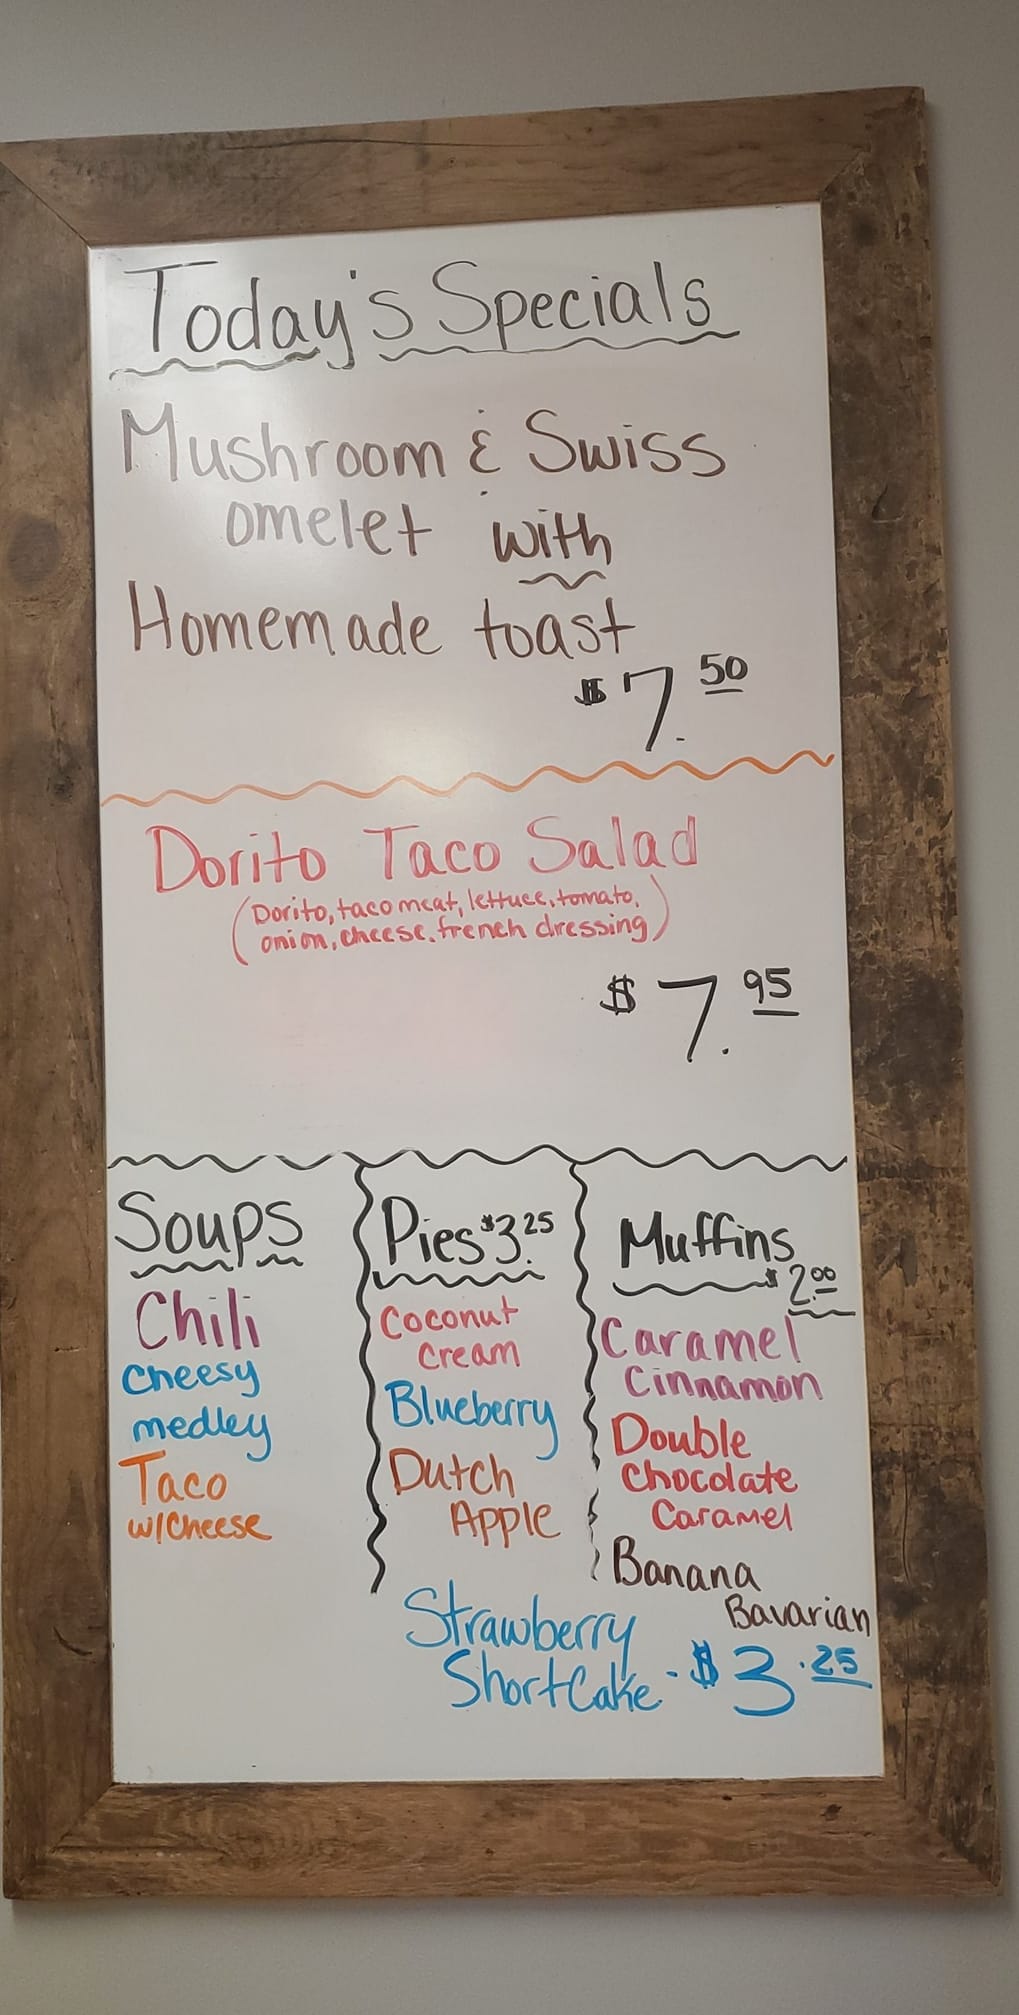 Today's Specials
Mushroom & Swiss
omelet with
Homemade toast
$7.50
Dorito Taco Salad
(Dorito, taco meat, lettuce, tomato,
onion, cheese, french dressing)
$7.95
Soups
Chili
Cheesy
medley
Taco
w/Cheese
Pies $3.25
Coconut
Cream
Blueberry
Dutch
Apple
Muffins
$2.00
Caramel
Cinnamon
Double
Chocolate
Caramel
Banana
Bavarian
Strawberry
ShortCake - $3.25